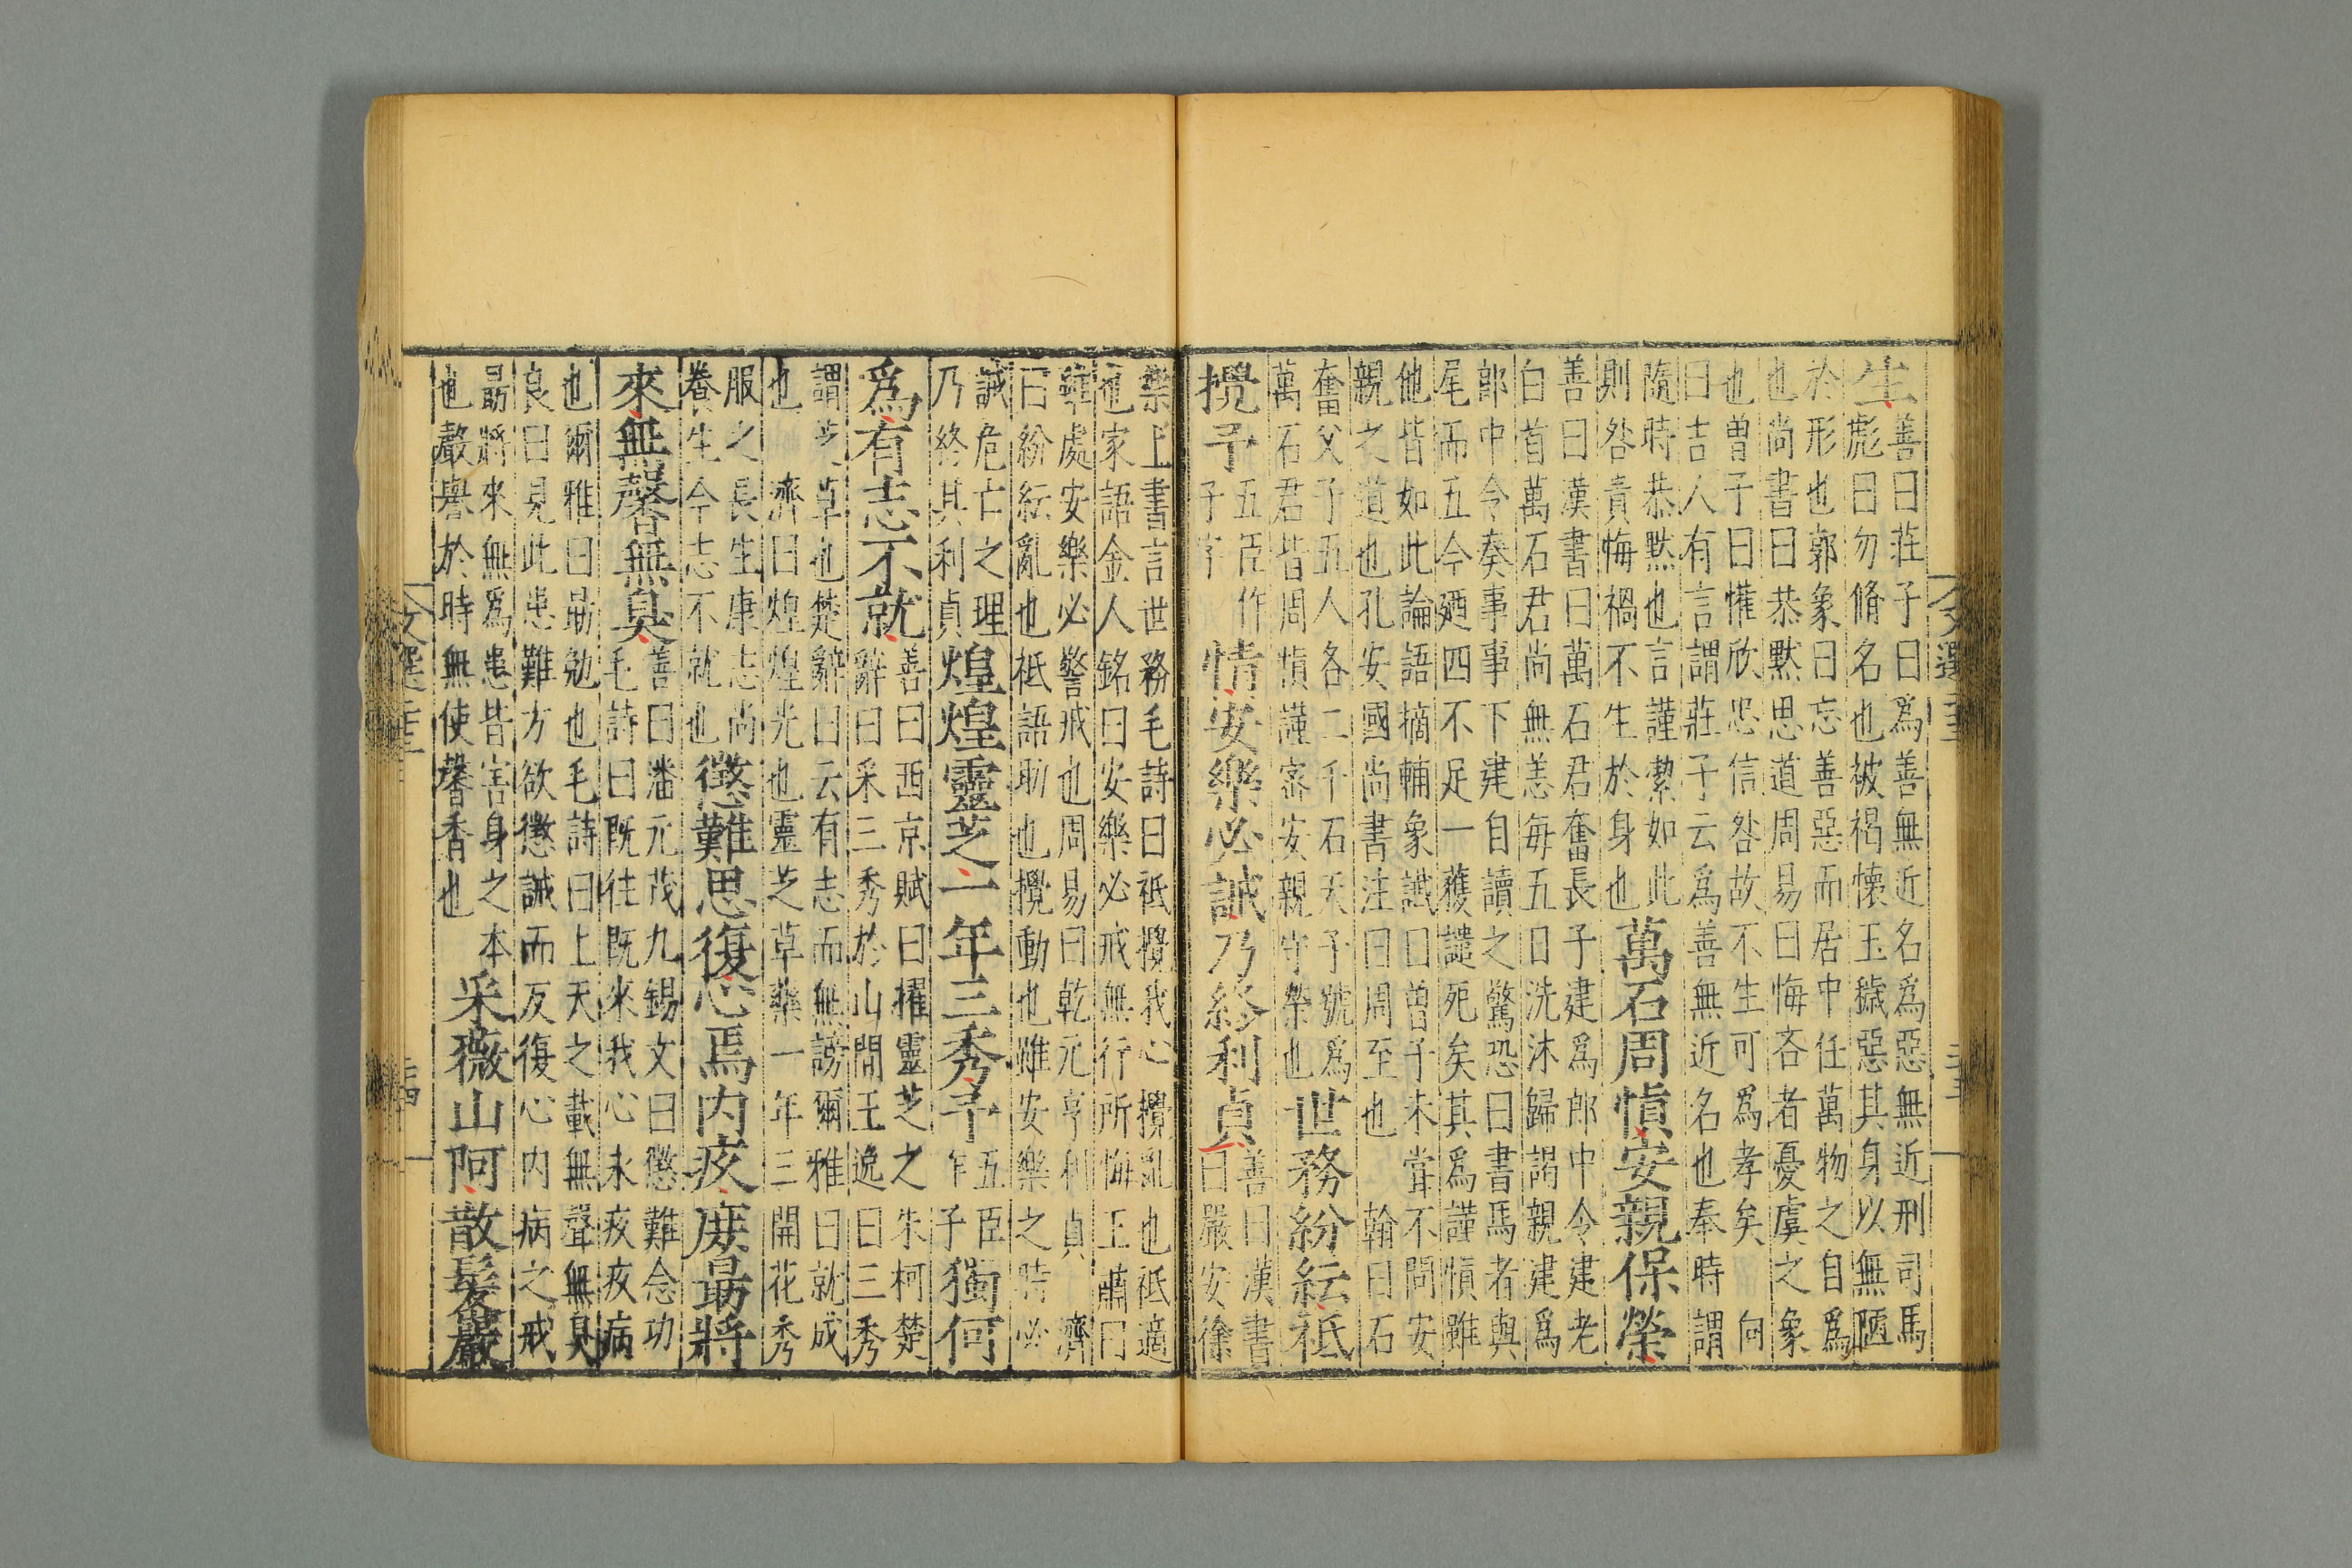 生
善曰莊子曰爲善無近名爲惡無近刑司馬
彪曰勿脩名也被褐懷玉穢惡其身以無陋
於形也郭象曰忘善惡而居中任萬物之自爲
也尚書曰恭默思道周易曰悔吝者憂虞之象
也曽子曰懽欣忠信咎故不生可爲孝矣 向
曰吉人有言謂莊子云爲善無近名也奉時謂
隨時恭默也言謹潔如此
則咎責悔禍不生於身也
萬石周慎安親保榮
善曰漢書曰萬石君奮長子建爲郎中令建老
白首萬石君尚無恙每五日洗沐歸謁親建爲
郎中令奏事事下建自讀之驚恐曰書馬者與
尾而五今廼四不足一獲譴死矣其爲謹慎雖
他皆如此論語摘輔象讖曰曾子未甞不問安
親之道也孔安國尚書注曰周至也 翰曰石
奮父子五人各二千石天子號爲
萬石君皆周慎謹密安親守榮也
世務紛紜祗
攪予
五臣作
子字
情安樂必誡乃終利貞
善曰漢書
曰嚴安徐
樂上書言世務毛詩曰祗攪我心攪亂也祗適
也家語金人銘曰安樂必戒無行所悔王肅曰
雖處安樂必警戒也周易曰乾元亨利貞 濟
曰紛紜亂也祗語助也攪動也雖安樂之時必
誡危亡之理
乃終其利貞
煌煌靈芝一年三秀予
五臣
作子
獨何
爲有志不就
善曰西京賦曰擢靈芝之朱柯楚
辭曰采三秀於山閒王逸曰三秀
謂芝草也楚辭曰云有志而無謗爾雅曰就成
也 濟曰煌煌光也靈芝草藥一年三開花秀
服之長生康志尚
養生今志不就也
懲難思復心焉内疚庶勗將
來無馨無臭
善曰潘元茂九錫文曰懲難念功
毛詩曰既往既來我心永疚疚病
也爾雅曰勗勉也毛詩曰上天之載無聲無臭
良曰見此患難方欲懲誡而反復心内病之戒
勗將來無爲患皆害身之本
也聲譽於時無使馨香也
采薇山阿散髮巖
文選